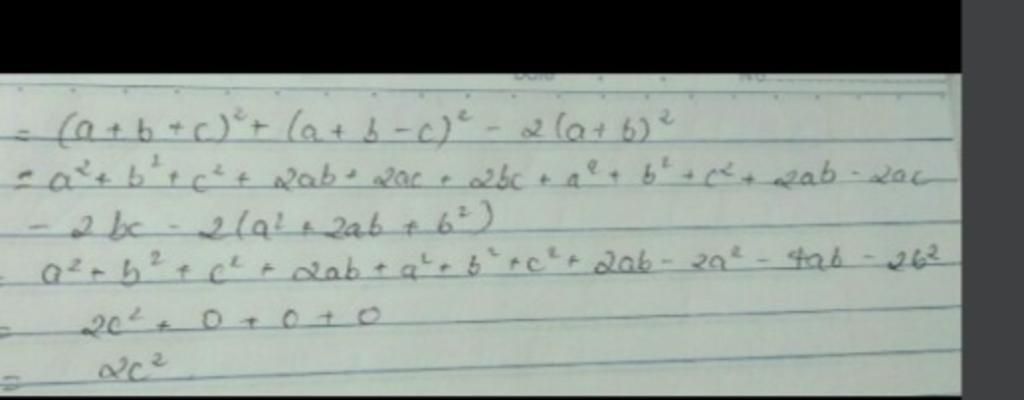 = (a + b + c)² + (a + b - c)² - 2(a + b)²
= a² + b² + c² + 2ab + 2ac + 2bc + a² + b² + c² + 2ab - 2ac
- 2bc - 2(a² + 2ab + b²)
= a² + b² + c² + 2ab + a² + b² + c² + 2ab - 2a² - 4ab - 2b²
= 2c² + 0 + 0 + 0
= 2c²